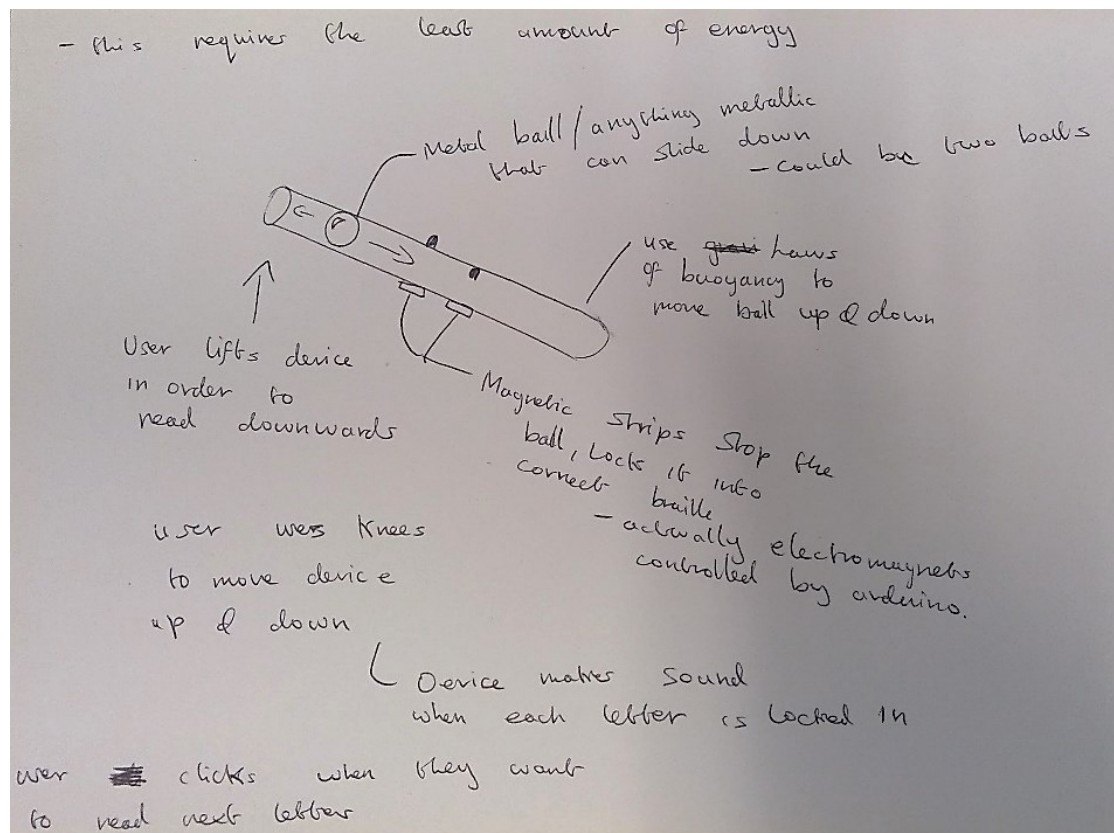 - this requires the least amount of energy
Metal ball / anything metallic
that can slide down
- could be two balls
use laws
of buoyancy to
move ball up & down
User lifts device
in order to
read downwards
Magnetic strips stop the
ball, locks it into
correct braille
- actually electromagnets
controlled by arduino.
user uses knees
to move device
up & down
Device makes sound
when each letter is locked in
user clicks when they want
to read next letter